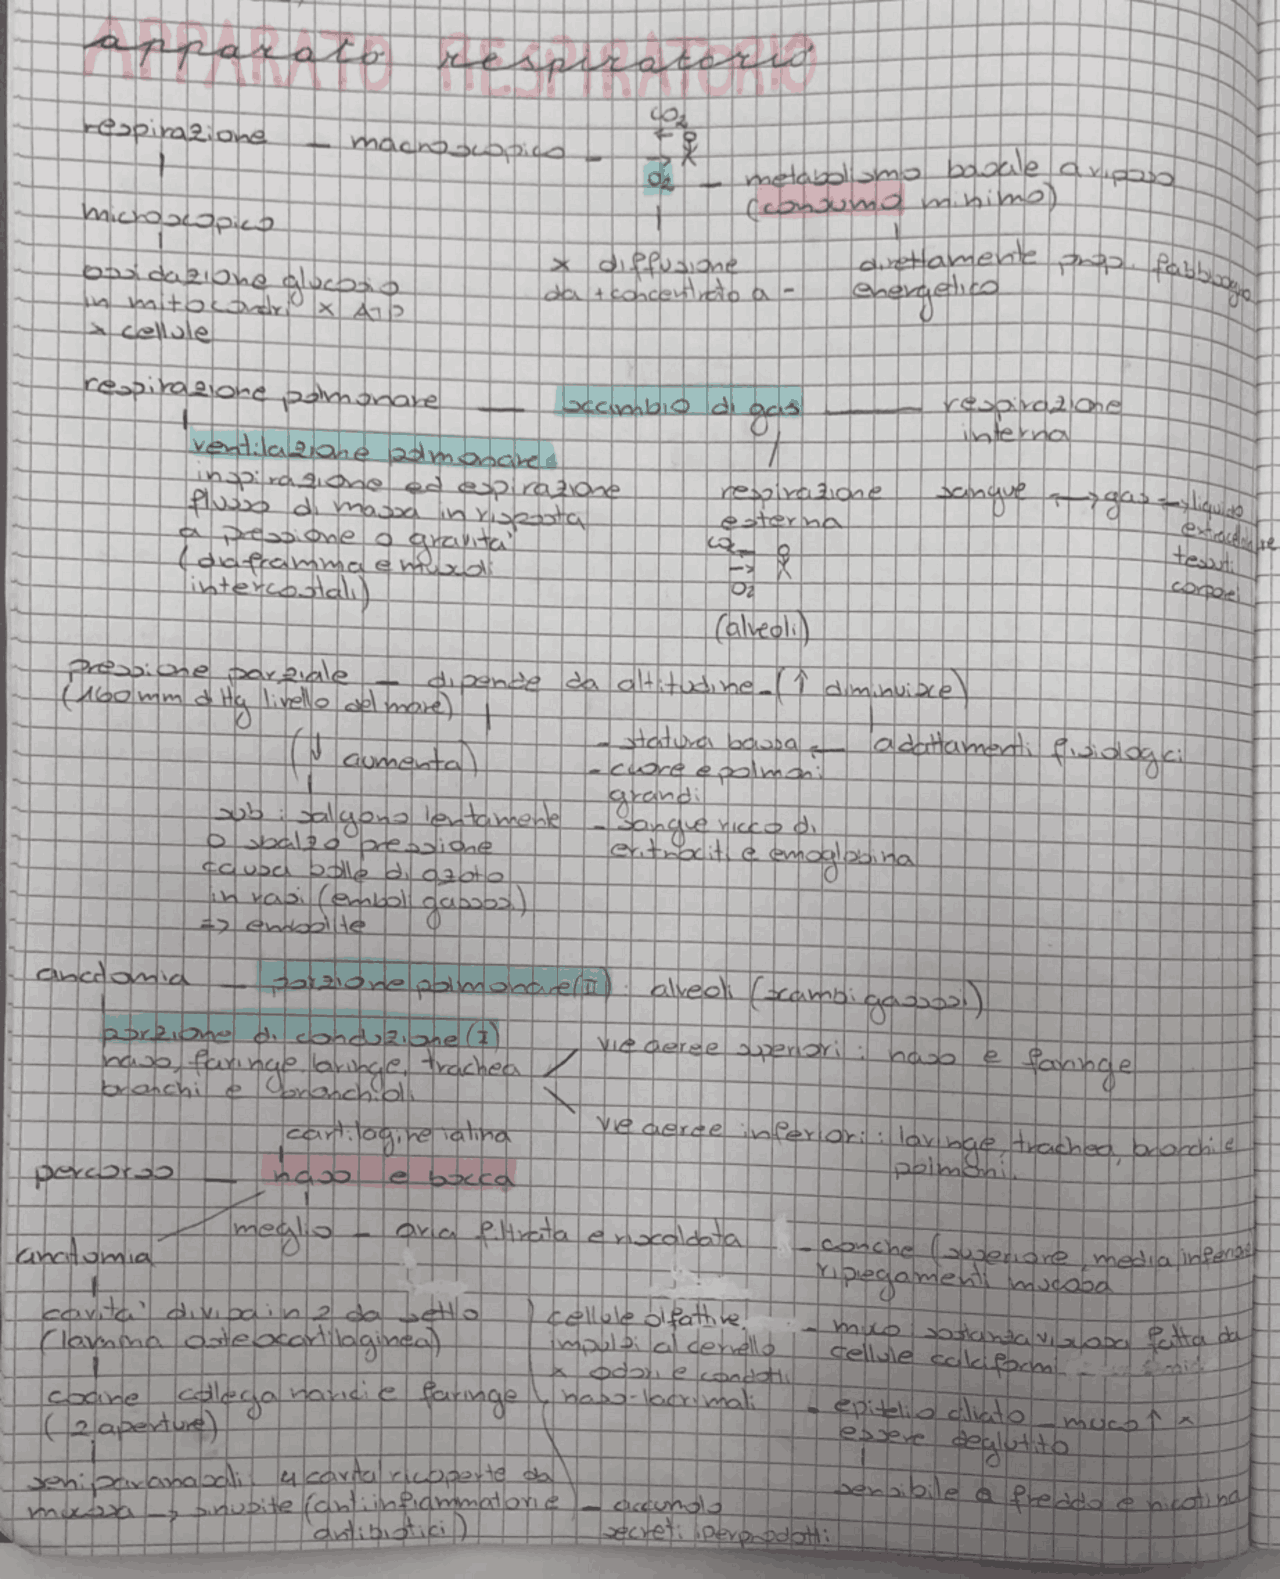 APPARATO RESPIRATORIO
apparato respiratorio
CO2
respirazione - macroscopico -
O2 - metabolismo basale a riposo
(consumo minimo)
microscopico
x diffusione
da + concentrato a -
direttamente prop. fabbisogno
energetico
ossidazione glucosio
in mitocondri x ATP
x cellule
respirazione polmonare - scambio di gas - respirazione
interna
ventilazione polmonare
inspirazione ed espirazione
flusso di massa in risposta
a pressione o gravità
(diaframma e muscoli
intercostali)
respirazione
esterna
CO2
O2
(alveoli)
sangue <-> gas <-> liquido
extracellulare
tessuti
corporei
pressione parziale - dipende da altitudine - (↑ diminuisce)
(160 mm di Hg livello del mare)
(↓ aumenta)
- statura bassa ← adattamenti fisiologici
- cuore e polmoni
grandi
- sangue ricco di
eritrociti e emoglobina
sub: salgono lentamente
o sbalzo pressione
causa bolle di azoto
in vasi (emboli gassosi)
=> embolite
anatomia - porzione polmonare (II): alveoli (scambi gassosi)
porzione di conduzione (I)
naso, faringe, laringe, trachea
bronchi e bronchioli
vie aeree superiori: naso e faringe
vie aeree inferiori: laringe, trachea, bronchi e
polmoni.
cartilagine ialina
percorso - naso e bocca
meglio - aria filtrata e riscaldata
anatomia
- conche (superiore, media inferiore
ripiegamenti mucosa
cavità divisa in 2 da setto
(lamina osteocartilaginea)
cellule olfattive
impulsi al cervello
x odori e condotti
naso-lacrimali
- muco sostanza viscosa fatta da
cellule caliciformi
coane collega narici e faringe
(2 aperture)
- epitelio ciliato - muco ↑ x
essere deglutito
sensibile a freddo e nicotina
seni paranasali 4 cavità ricoperte da
mucosa → sinusite (antiinfiammatori e
antibiotici)
- accumulo
secreti iperprodotti